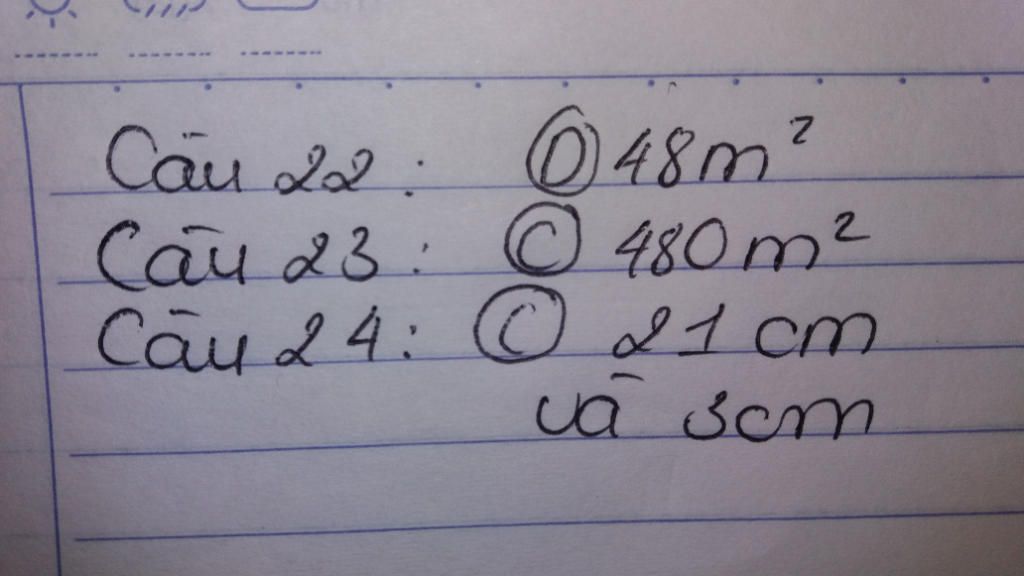 Câu 22: D 48m²
Câu 23: C 480m²
Câu 24: C 21 cm
và 3cm